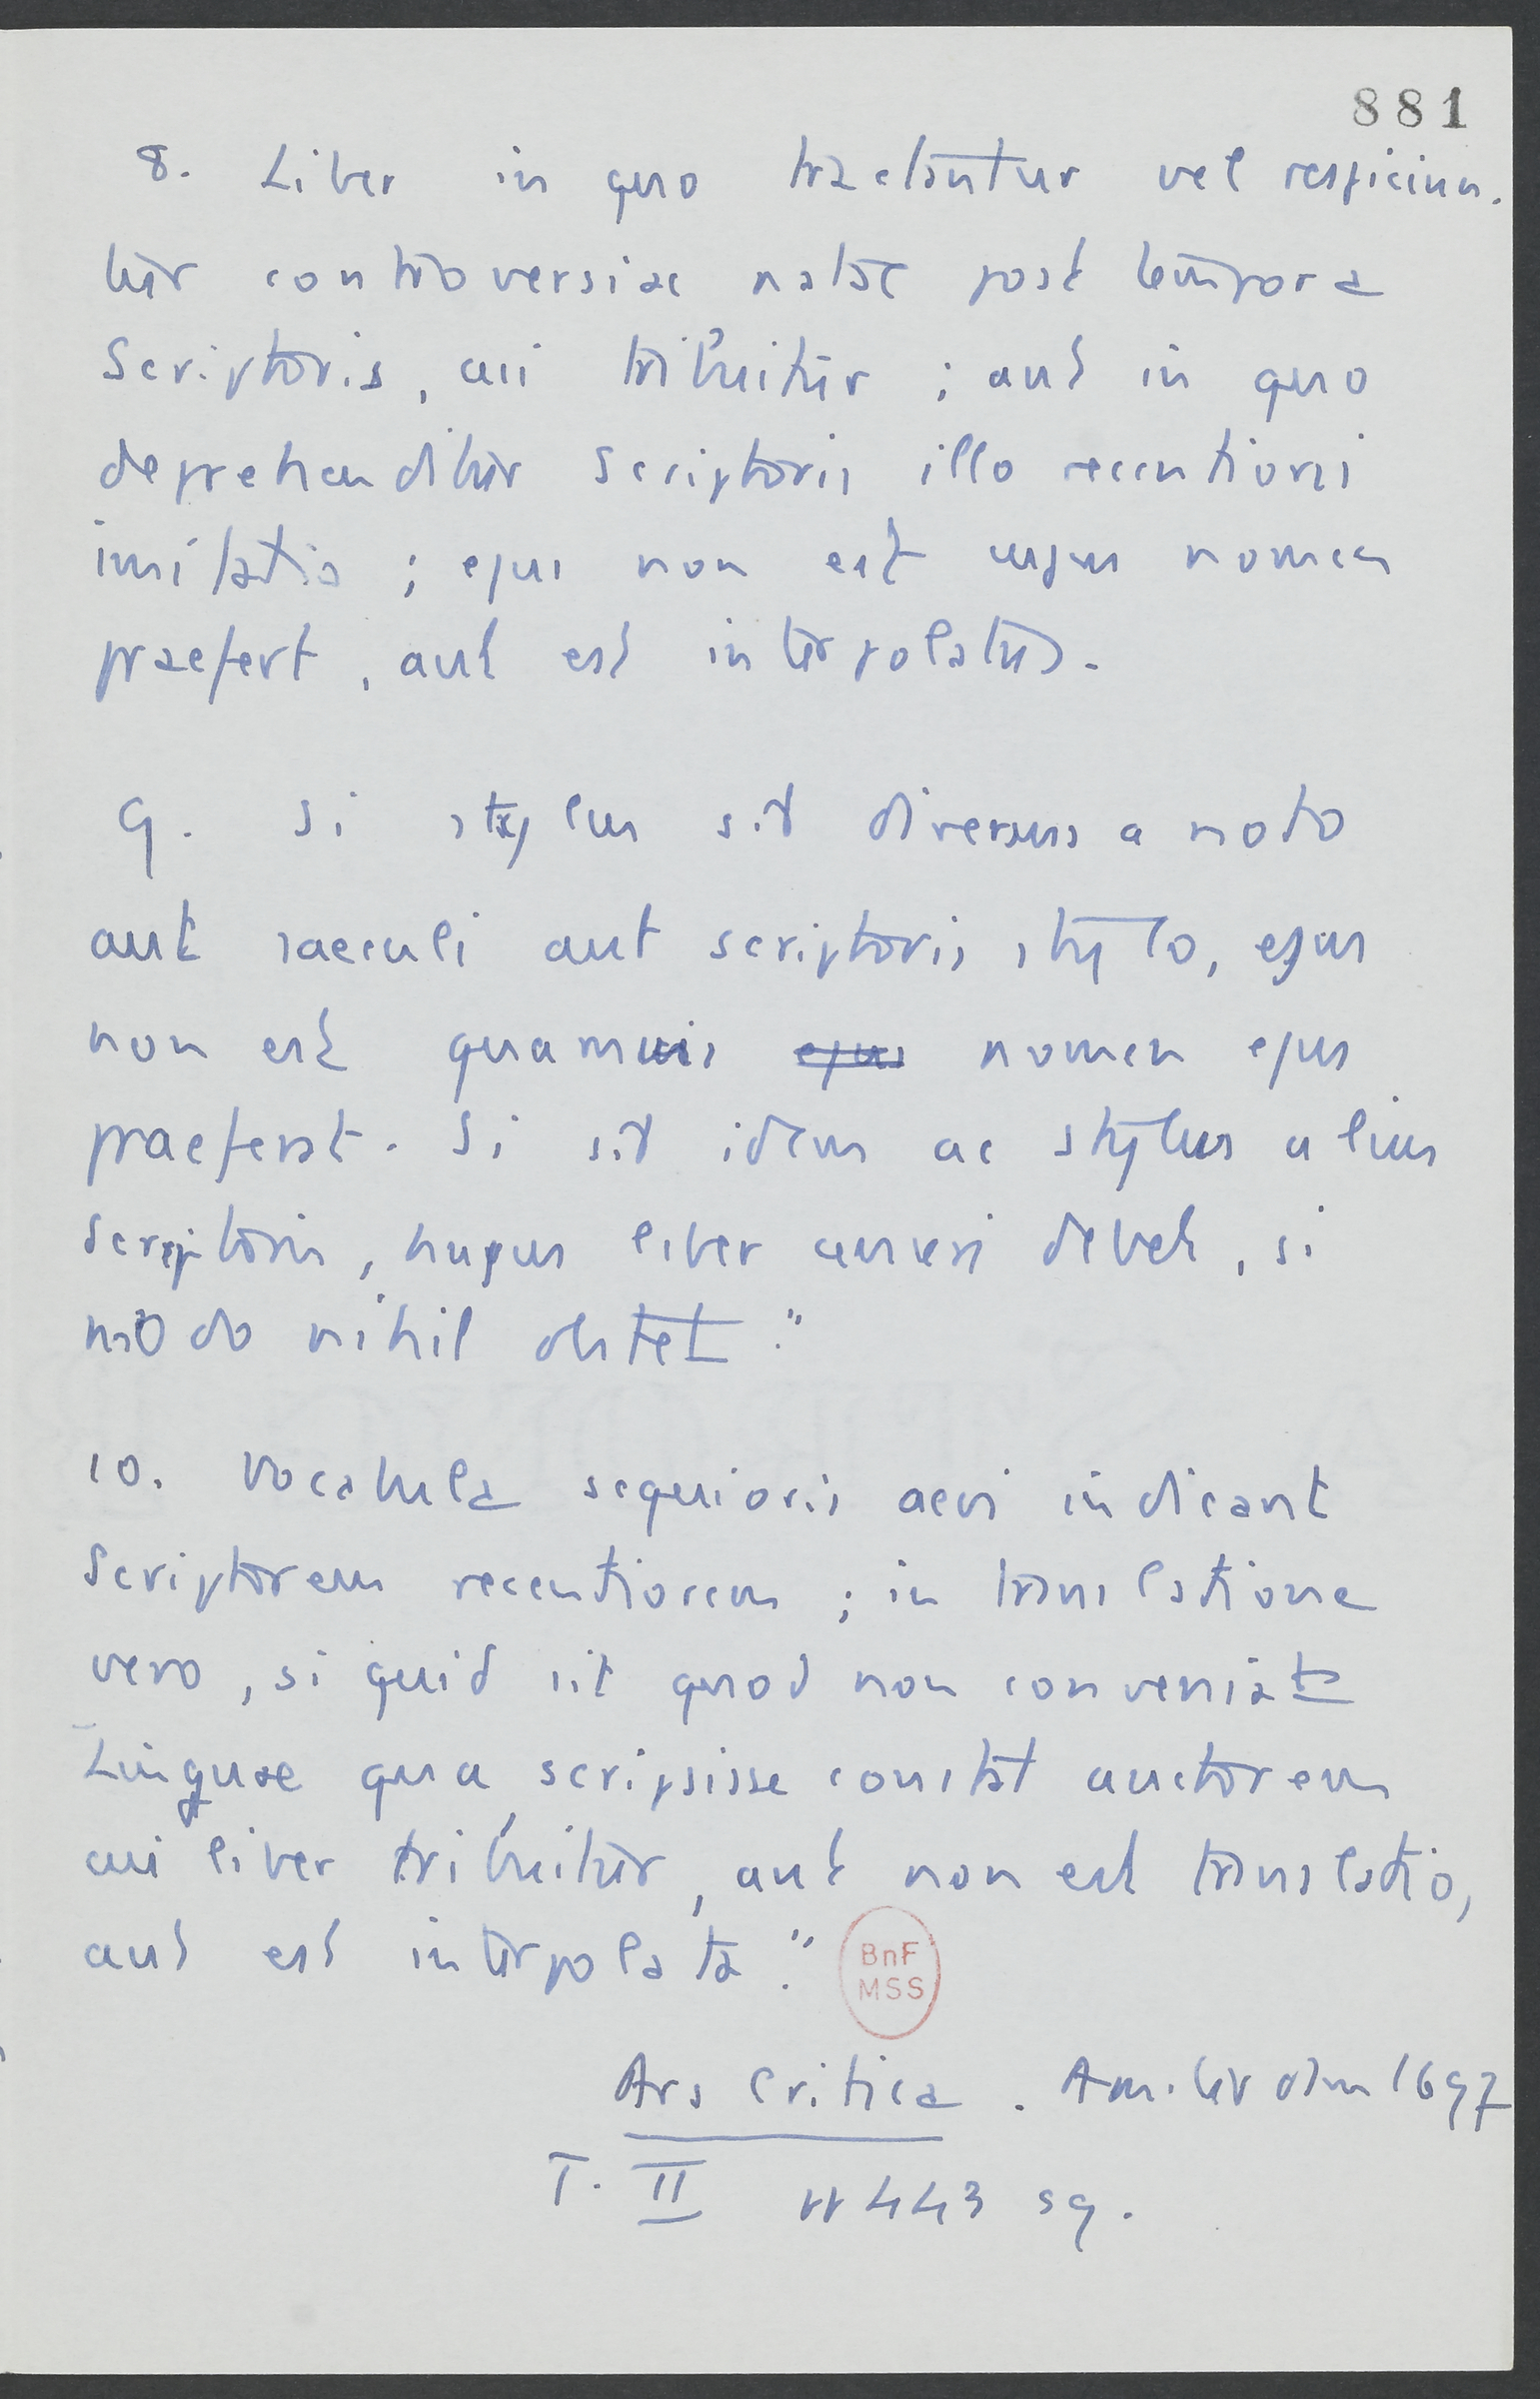 881
8. Liber in quo tractantur vel respiciun-
tur controversiae natae post tempora
Scriptoris, cui tribuitur ; aut in quo
deprehenditur Scriptoris illo recentioris
imitatio ; ejus non est cujus nomen
praefert, aut est interpolatus.
9. Si stylus sit diversus a noto
aut saeculi aut scriptoris stylo, ejus
non est quamvis ejus nomen ejus
praeferat. Si sit idem ac stylus alius
Scriptoris, hujus liber censeri debet, si
modo nihil obstet."
10. Vocabula sequioris aevi indicant
Scriptorem recentiorem ; in translatione
vero, si quid sit quod non conveniat
Linguae qua scripsisse constat auctorem
cui liber tribuitur, aut non est translatio,
aut est interpolata."
BnF
MSS
Ars Critica. Amsterdam 1697
T. II pp 443 sq.